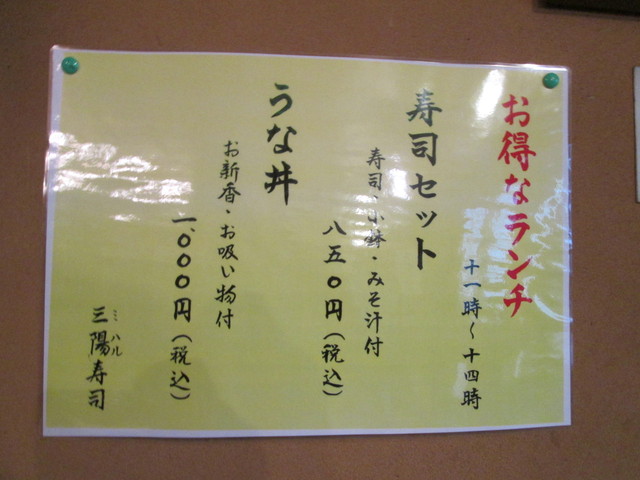 お得なランチ
十一時~十四時
寿司セット
寿司、小鉢・みそ汁付
八五〇円(税込)
うな丼
お新香・お吸い物付
一、〇〇〇円(税込)
三陽寿司
ミハル